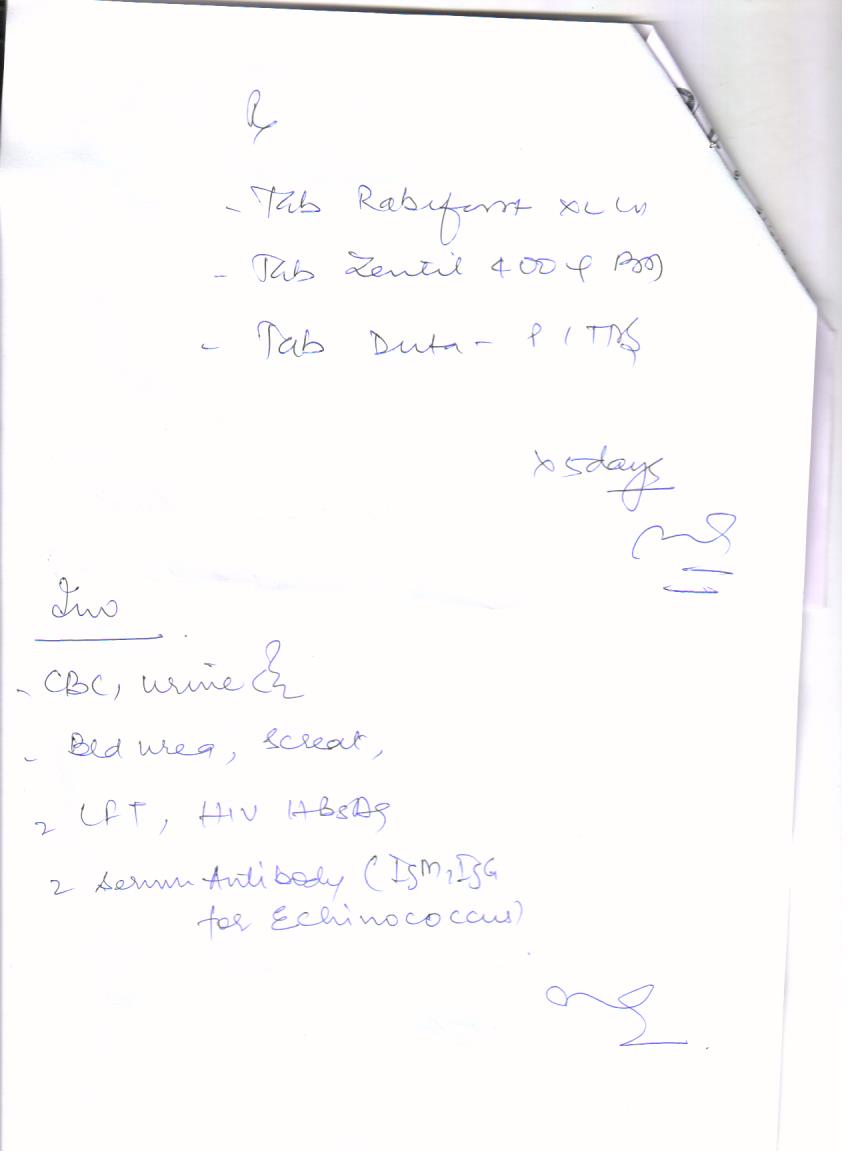 Rx
- Tab Rabifast XL
- Tab Zentil 400 BD
- Tab Duta - P 1 TDS
x 5 days
Inv
- CBC, urine
- Bld urea, Screat,
- LFT, HIV HBsAg
- Serum Antibody (IgM, IgG
for Echinococcus)